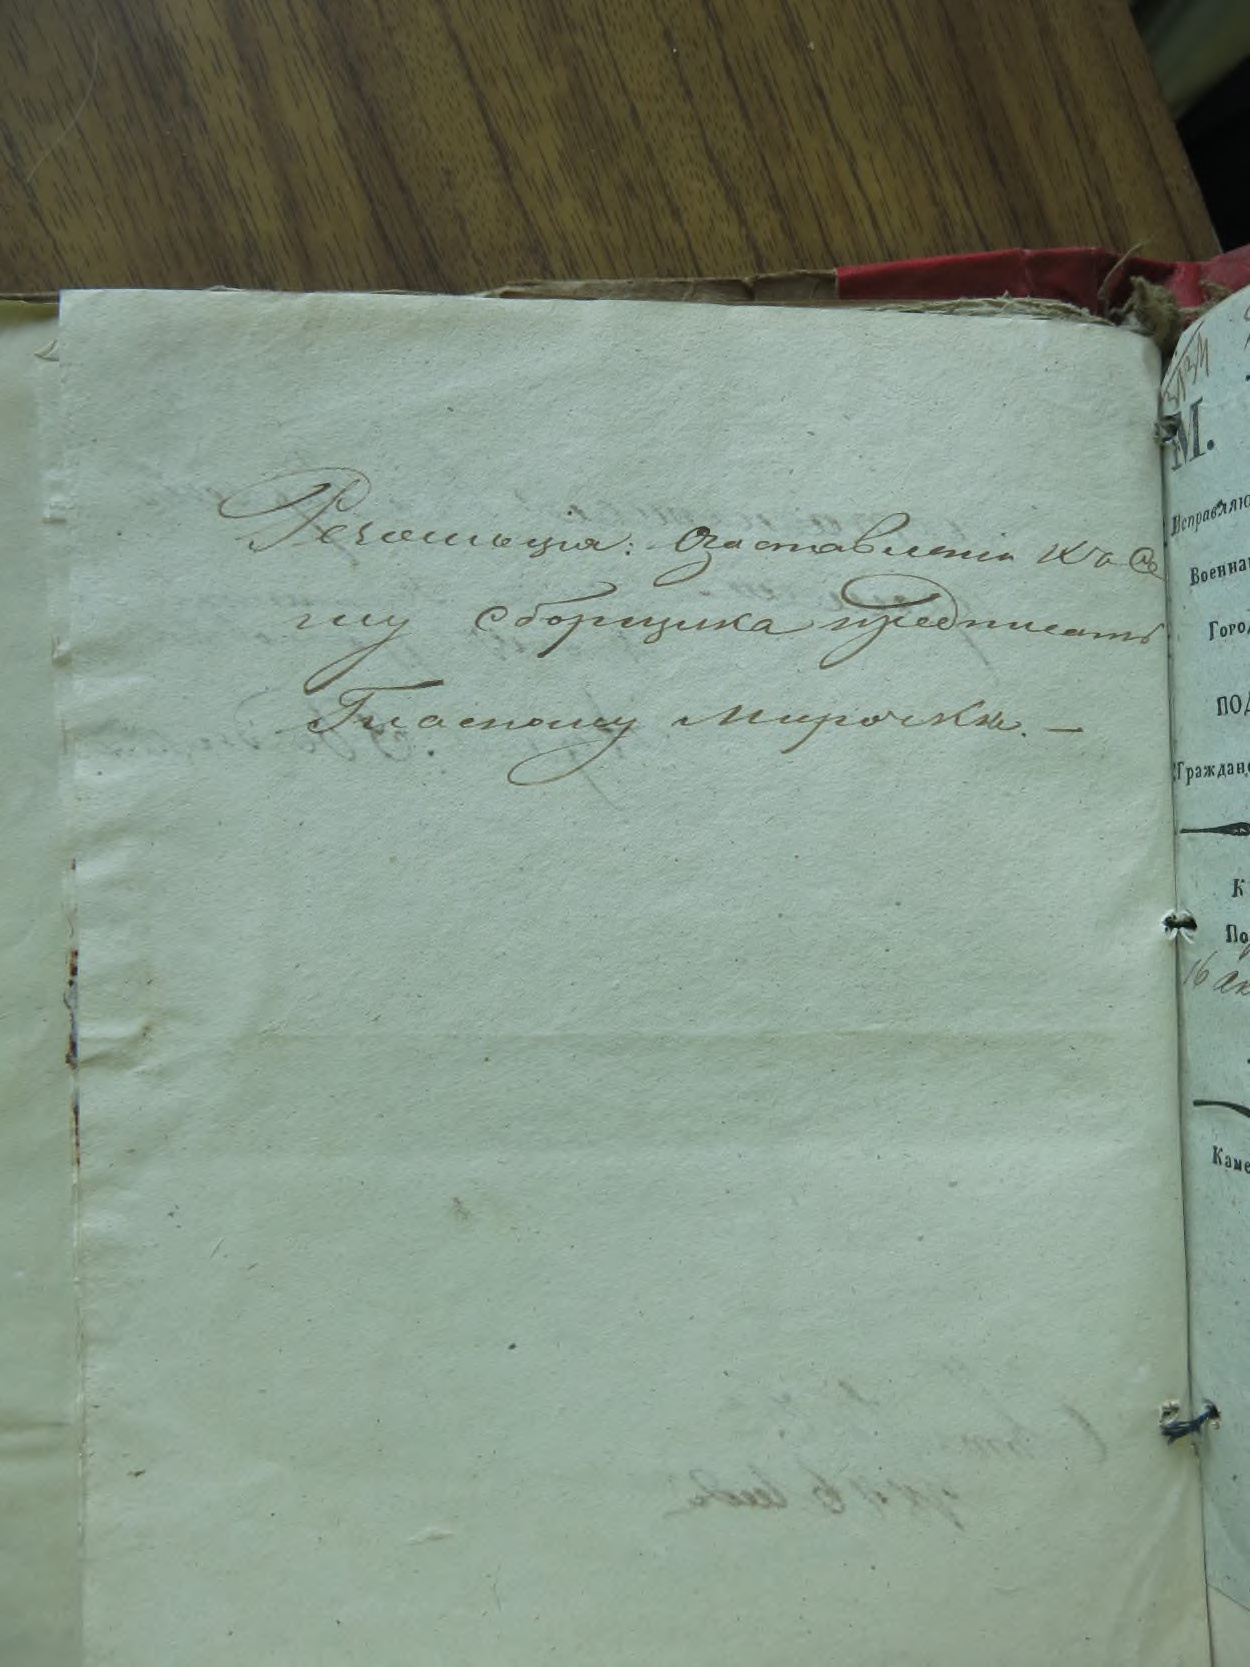 Резолюція: О доставленіи къ се
му сборщика предписать
Гласному Мирочкѣ. —
М.
Исправляю
Военна
Горо
ПОД
Граждан
К
По
16
Каме